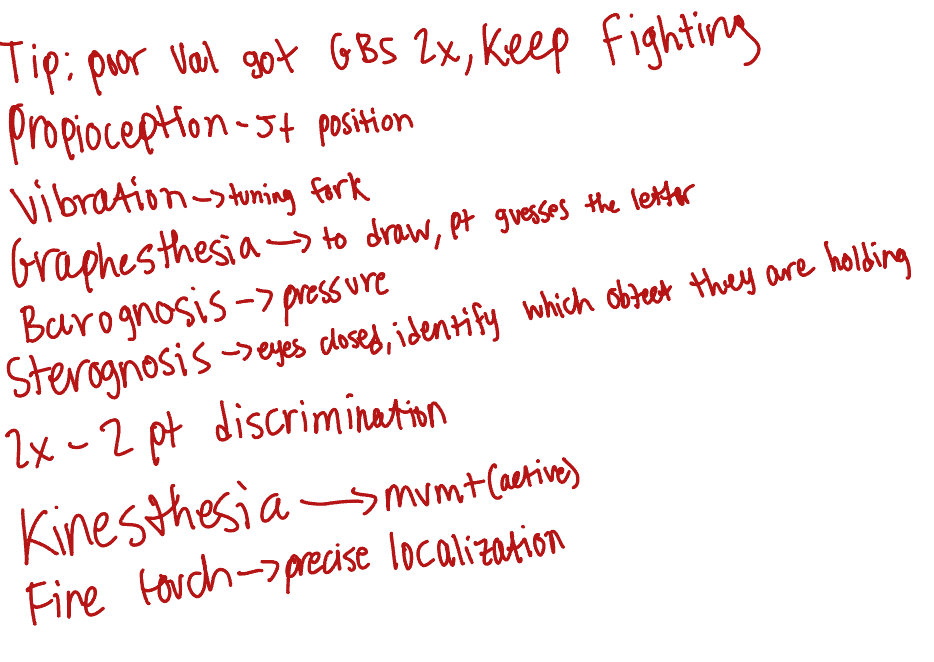 Tip: poor Val got GBS 2x, Keep Fighting
Propioception - Jt position
Vibration -> tuning fork
Graphesthesia -> to draw, pt guesses the letter
Barognosis -> pressure
Sterognosis -> eyes closed, identify which object they are holding
2x - 2 pt discrimination
Kinesthesia -> mvmt (active)
Fine touch -> precise localization